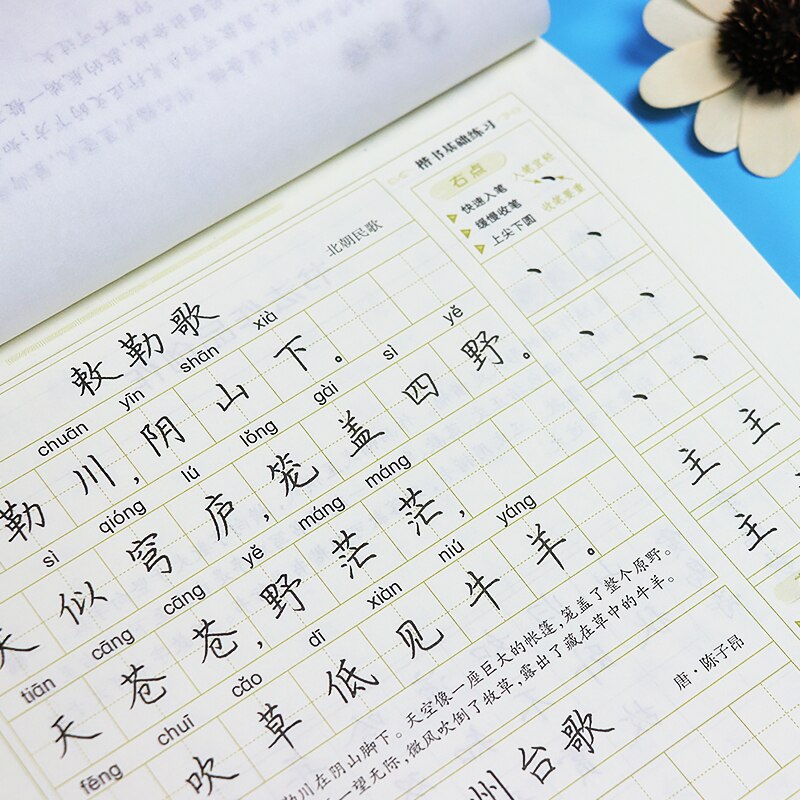 楷书基础练习
北朝民歌
敕勒歌
chuān yīn shān xià
勒川,阴山下。
sì qióng lú lǒng gài sì yě
天似穹庐,笼盖四野。
tiān cāng cāng yě máng máng
天苍苍,野茫茫,
fēng chuī cǎo dī xiàn niú yáng
吹草低见牛羊。
勒川在阴山脚下。天空像一座巨大的帐篷,笼盖了整个原野。
一望无际,微风吹倒了牧草,露出了藏在草中的牛羊。
唐·陈子昂
州台歌
右点
快速入笔
缓慢收笔
上尖下圆
入笔宜轻
收笔要重
主 主
主